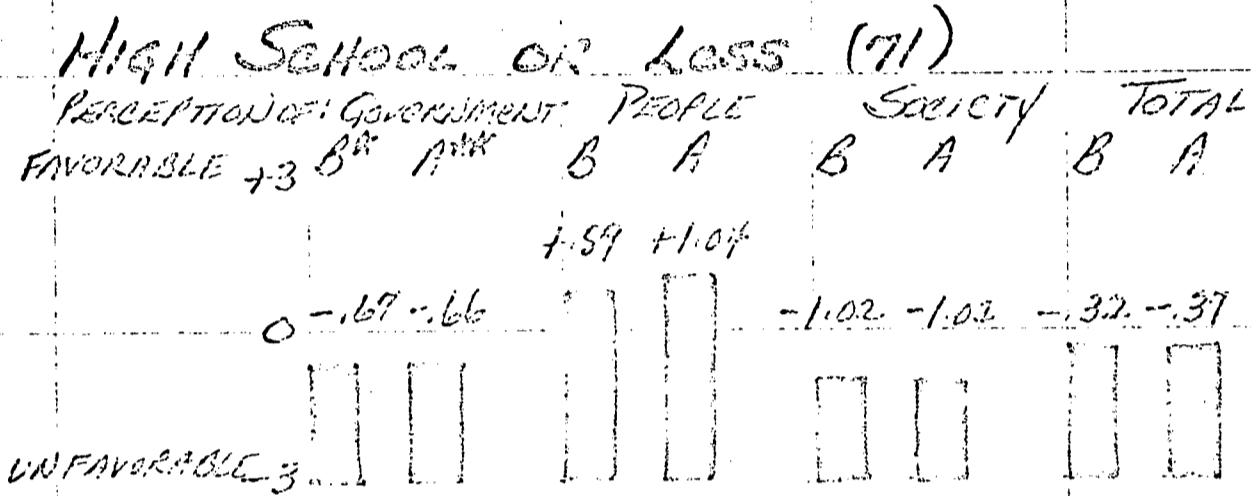 HIGH SCHOOL OR LESS (71)
PERCEPTION OF: GOVERNMENT PEOPLE SOCIETY TOTAL
FAVORABLE +3 B* A** B A B A B A
+.59 +1.04
0 -.67 -.66 -1.02 -1.02 -.32 -.37
UNFAVORABLE -3